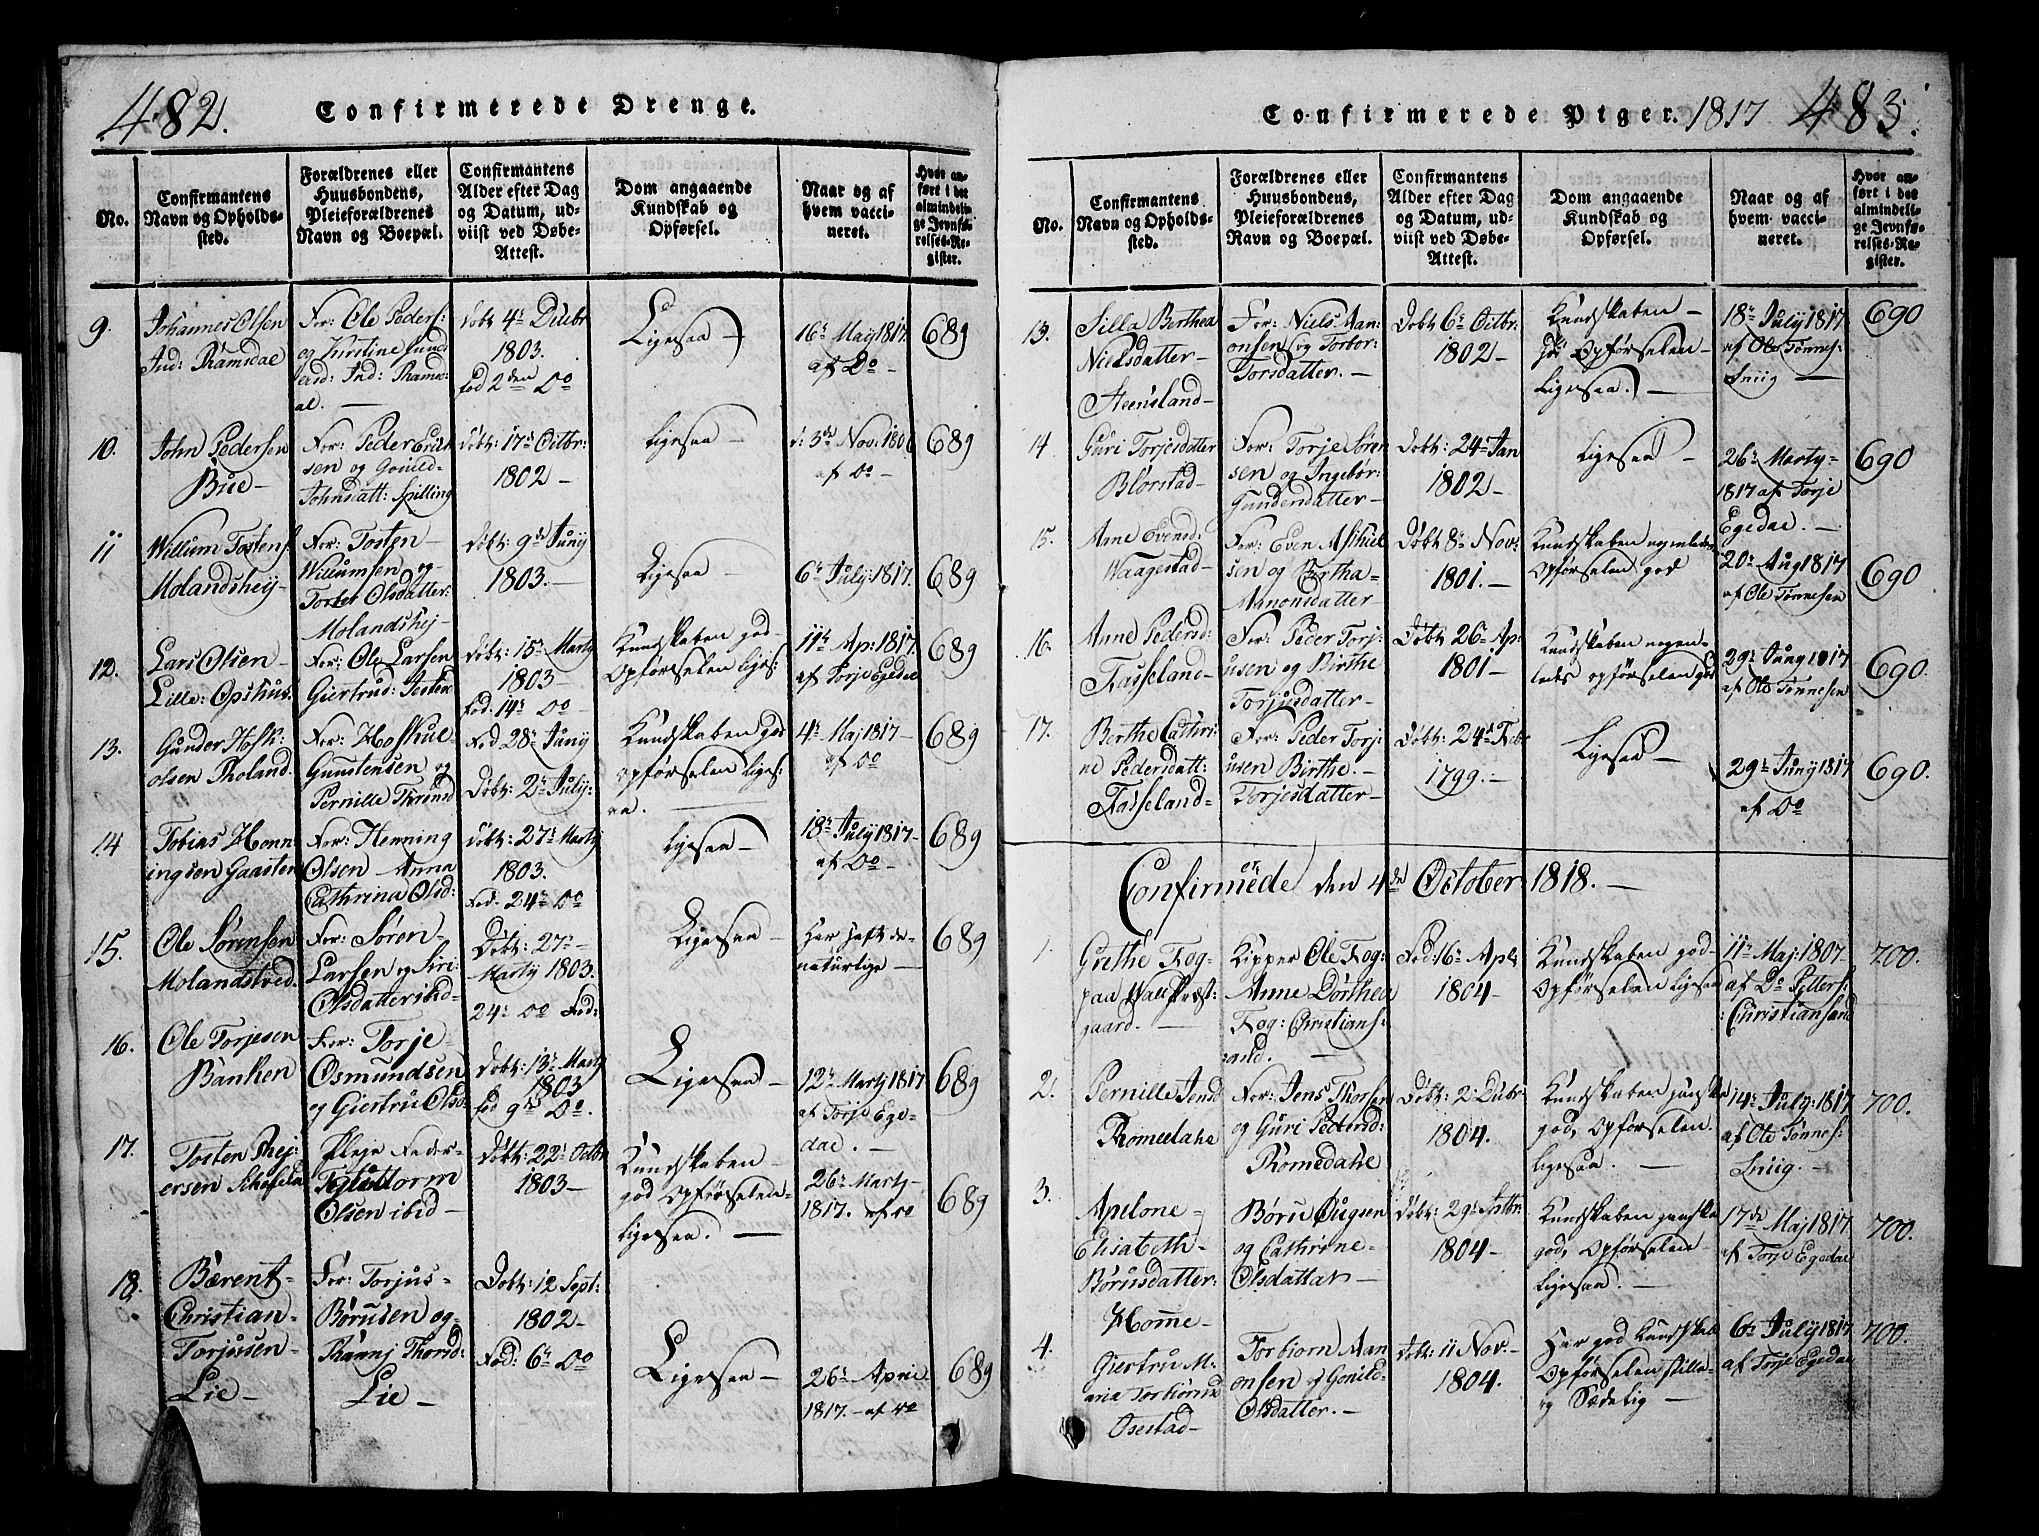 482.
Confirmerede Drenge.
No.
Confirmantens
Navn og Opholds-
sted.
Forældrenes eller
Huusbondens,
Pleieforældrenes
Navn og Boepæl.
Confirmantens
Alder efter Dag
og Datum, ud-
viist ved Døbe-
Attest.
Dom angaaende
Kundskab og
Opførsel.
Naar og af
hvem vacci-
neret.
Hvor an-
ført i det
almindeli-
ge Jevnfø-
relses-Re-
gister.
9.
Johannes Olsen
Ind: Ramsdal
For: Ole Peders:
og Kirstine
Ind: Rams:
al. —
Døbt 4de Decbr
1803.
fød 2den Do
Ligesaa —
16de Maj 1817.
af Do
689
10.
John Pedersen
Bue —
For: Peder
sen og Gonild
Johnsdatt: Spilling
Døbt: 17de Octbr:
1802 —
Ligesaa —
d: 3de Nov: 1806
af Do —
689
11
Willum Tostens:
Molandshej —
For: Tosten —
Willumsen og —
Olsdatter
Molandshej —
Døbt: 9de Juny
1803. —
Ligesaa —
6de July 1817.
689
12.
Lars Olsen —
Lille: Opshus
For: Ole Larsen
Giertrud
Døbt: 15de Marty
1803 —
fød. 14de Do
Kundskaben god —
Opførselen liges:
11te Ap: 1817.
af Torje Egedal
689
13.
Gunder Hosk:
olsen Roland.
For: Hoskuel
Gunstensen og
Pernille
Fød 28de Juny
Døbt: 2de July
Kundskaben god
opførselen liges:
aa.
4de Maj 1817 —
af Do
689
14
Tobias Henn
ingsen Gaasten
For: Henning
Olsen Anna
Cathrina Olsd:
Døbt: 27de Marty
1803.
Fød. 24de Do
Ligesaa —
18de July 1817 —
af Do
689
15.
Ole Sørensen
Molandsved.
For: Søren —
Larsen og Siri
Olsdatter ibid —
Døbt: 27de —
Marty 1803.
24de Do Fød:
Ligesaa —
Har haft de —
naturlige —
689
16.
Ole Torjesen
Banken
For: Torje —
Osmundsen
og Giertru Olsd:
Døbt: 13de Marty
1803
fød 9de Do.
Ligesaa —
12te Marty 1817
af Torje Ege-
dal. —
689
17.
Tosten Rej:
ersen
Pleje Fader —
Olsen ibid —
Døbt: 22de Octbr
1803 —
Kundskaben —
god Opførselen —
ligesaa. —
26de Marty
1817. af Do
689
18.
Bærent —
Christian —
Torjussen —
Lie —
For: Torjus —
Børusen og —
Thorsd:
Lie —
Døbt: 12 Sept:
1802 —
Fød: 6te Do
Ligesaa —
26de April
1817. — af Do
689
Confirmerede Piger. 1817
483.
No.
Confirmantens
Navn og Opholds-
sted.
Forældrenes eller
Huusbondens,
Pleieforældrenes
Navn og Boepæl.
Confirmantens
Alder efter Dag
og Datum, ud-
viist ved Døbe-
Attest.
Dom angaaende
Kundskab og
Opførsel.
Naar og af
hvem vacci-
neret.
Hvor an-
ført i det
almindeli-
ge Jevnfø-
relses-Re-
gister.
13.
Silla Berthea
Nielsdatter —
Steensland —
For: Niels Aan-
onsen og Torbor:
Torsdatter. —
Døbt 6te Octbr:
1802 —
Kundskaben —
god Opførselen —
Ligesaa. —
18de July 1817
af Ole Tønnes:
690
14
Guri Torjesdatter
Blørstad —
For: Torje Søren
sen og Ingebor:
Gundersdatter —
Døbt: 24de Jan
1802 —
Ligesaa —
26de Marty —
1817 af Torje
Egedal. —
690
15.
Anne Evensd:
Waagestad —
For: Even
sen og Bertha —
Aanonsdatter
Døbt 8de Nov:
1801. —
Kundskaben nogenledes
Opførselen god
20de Aug 1817
af Ole Tønnesen
690
16.
Anne Pedersd:
Fasseland —
For: Peder Torj:
usen og Birthe
Torjusdatter —
Døbt 26de Ap:
1801 —
Kundskaben nogen-
ledes opførselen god
29de Juny 1817
af Ole Tønnesen
690.
17.
Berthe Cathri
ne Pedersdatt:
Fasseland —
For: Peder Torj:
usen Birthe. —
Torjesdatter —
Døbt: 24de Feb
1799. —
Ligesaa —
29de Juny 1817
af Do
690.
Confirmerede den 4de October 1818. —
1.
Grethe Fog —
paa Walle Præst:
gaard. —
Kipper Ole Fog:
Anne Dorthea
Fog: Christians:
sand. —
Fød: 16de Apl:
1804 —
Kundskaben god —
Opførselen ligesaa
11te Maj: 1807.
af Dr Petters:
: Christiansand
700.
2.
Pernille Jensd
Romedahe
For: Jens Thorsen
og Guri Pedersd:
Romedahe
Døbt: 2: Decbr
1804.
Kundskaben ganske
god, Opførselen
ligesaa. —
14de July: 1817
af Ole Tønnes:
700.
3.
Apelone —
Elisabeth —
Børusdatter:
Homme —
Børu
og Cathrine —
Olsdatter —
Døbt: 29de Sptbr:
1804 —
Kundskaben ganske
god, Opførselen —
ligesaa. —
17de Maj 1817.
af Torje Egedal
700.
4.
Giertru M:
aria Torbiørnsd
Osestad —
Torbiørn Aan
onsen og Gonild —
Olsdatter. —
Døbt: 11 Nov: —
1804.
Har god Kundskab
Opførselen stille —
og Sædelig —
6te July 1817
af Torje Egedal
700.